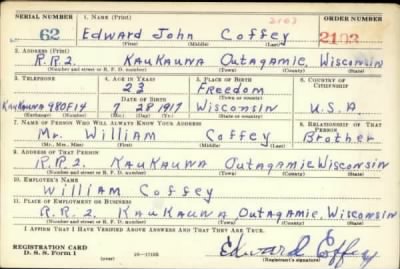 SERIAL NUMBER 1. NAME (Print) 2103 ORDER NUMBER
62 Edward John Coffey 2103
(First) (Middle) (Last)
2. ADDRESS (Print)
R.R.2. Kaukauna Outagamie, Wisconsin
(Number and street or R. F. D. number) (Town) (County) (State)
3. TELEPHONE 4. AGE IN YEARS 5. PLACE OF BIRTH 6. COUNTRY OF CITIZENSHIP
23 Freedom
DATE OF BIRTH (Town or county)
Kaukauna 980F14 7 28 1917 Wisconsin U.S.A.
(Exchange) (Number) (Mo.) (Day) (Yr.) (State or country)
7. NAME OF PERSON WHO WILL ALWAYS KNOW YOUR ADDRESS 8. RELATIONSHIP OF THAT PERSON
Mr. William Coffey Brother
(Mr., Mrs., Miss) (First) (Middle) (Last)
9. ADDRESS OF THAT PERSON
R.R.2. Kaukauna Outagamie, Wisconsin
(Number and street or R. F. D. number) (Town) (County) (State)
10. EMPLOYER'S NAME
William Coffey
11. PLACE OF EMPLOYMENT OR BUSINESS
R.R.2, Kaukauna Outagamie, Wisconsin
(Number and street or R. F. D. number) (Town) (County) (State)
I AFFIRM THAT I HAVE VERIFIED ABOVE ANSWERS AND THAT THEY ARE TRUE.
REGISTRATION CARD
D. S. S. Form 1 16—17105 Edward Coffey